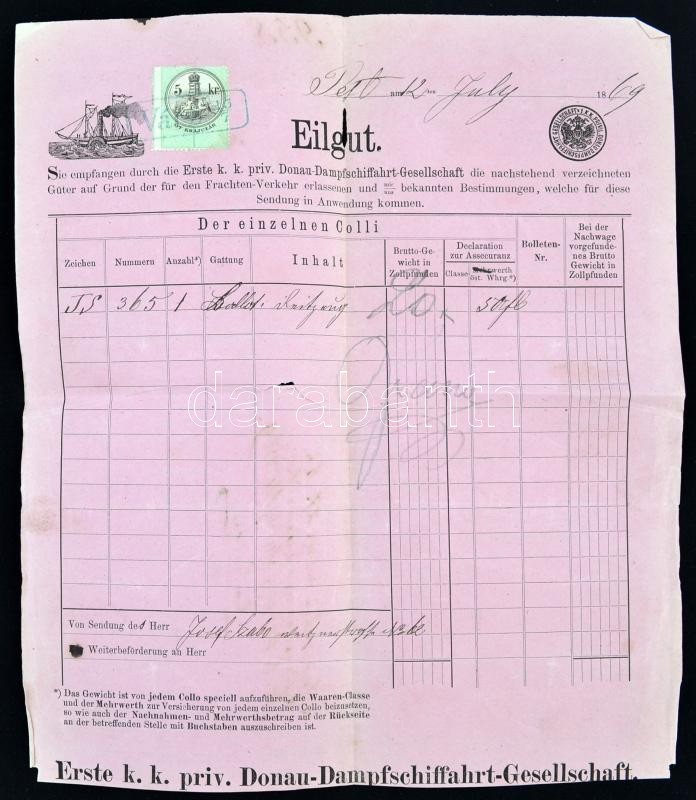 5 kr.
ÖT KRAJCZÁR
Pest am 12 ten July 1869
Eilgut.
Sie empfangen durch die Erste k. k. priv. Donau-Dampfschiffahrt-Gesellschaft die nachstehend verzeichneten
Güter auf Grund der für den Frachten-Verkehr erlassenen und mir/uns bekannten Bestimmungen, welche für diese
Sendung in Anwendung kommen.
Der einzelnen Colli
Zeichen Nummern Anzahl*) Gattung Inhalt
Brutto-Ge-
wicht in
Zollpfunden
Declaration
zur Assecuranz
Classe Mehrwerth
öst. Whrg.*)
Rolleten-
Nr.
Bei der
Nachwage
vorgefunde-
nes Brutto
Gewicht in
Zollpfunden
365 1 20 50 fl
darabanth
Von Sendung des Herr Josef Szabo No 62
Weiterbeförderung an Herr
*) Das Gewicht ist von jedem Collo speciell aufzuführen, die Waaren-Classe
und der Mehrwerth zur Versicherung von jedem einzelnen Collo beizusetzen,
so wie auch der Nachnahmen- und Mehrwerthsbetrag auf der Rückseite
an der betreffenden Stelle mit Buchstaben auszuschreiben ist.
Erste k. k. priv. Donau-Dampfschiffahrt-Gesellschaft.